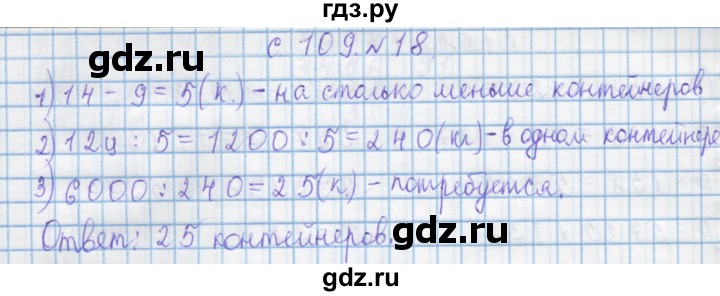 гдз.ру
с 109 № 18.
1) 14 - 9 = 5 (к.) - на столько меньше контейнеров
2) 12ц : 5 = 1200 : 5 = 240 (кг) - в одном контейнере
3) 6000 : 240 = 25 (к.) - потребуется.
Ответ: 25 контейнеров.
gdz.ru
gdz.ru
gdz.ru
gdz.ru
gdz.ru
gdz.ru